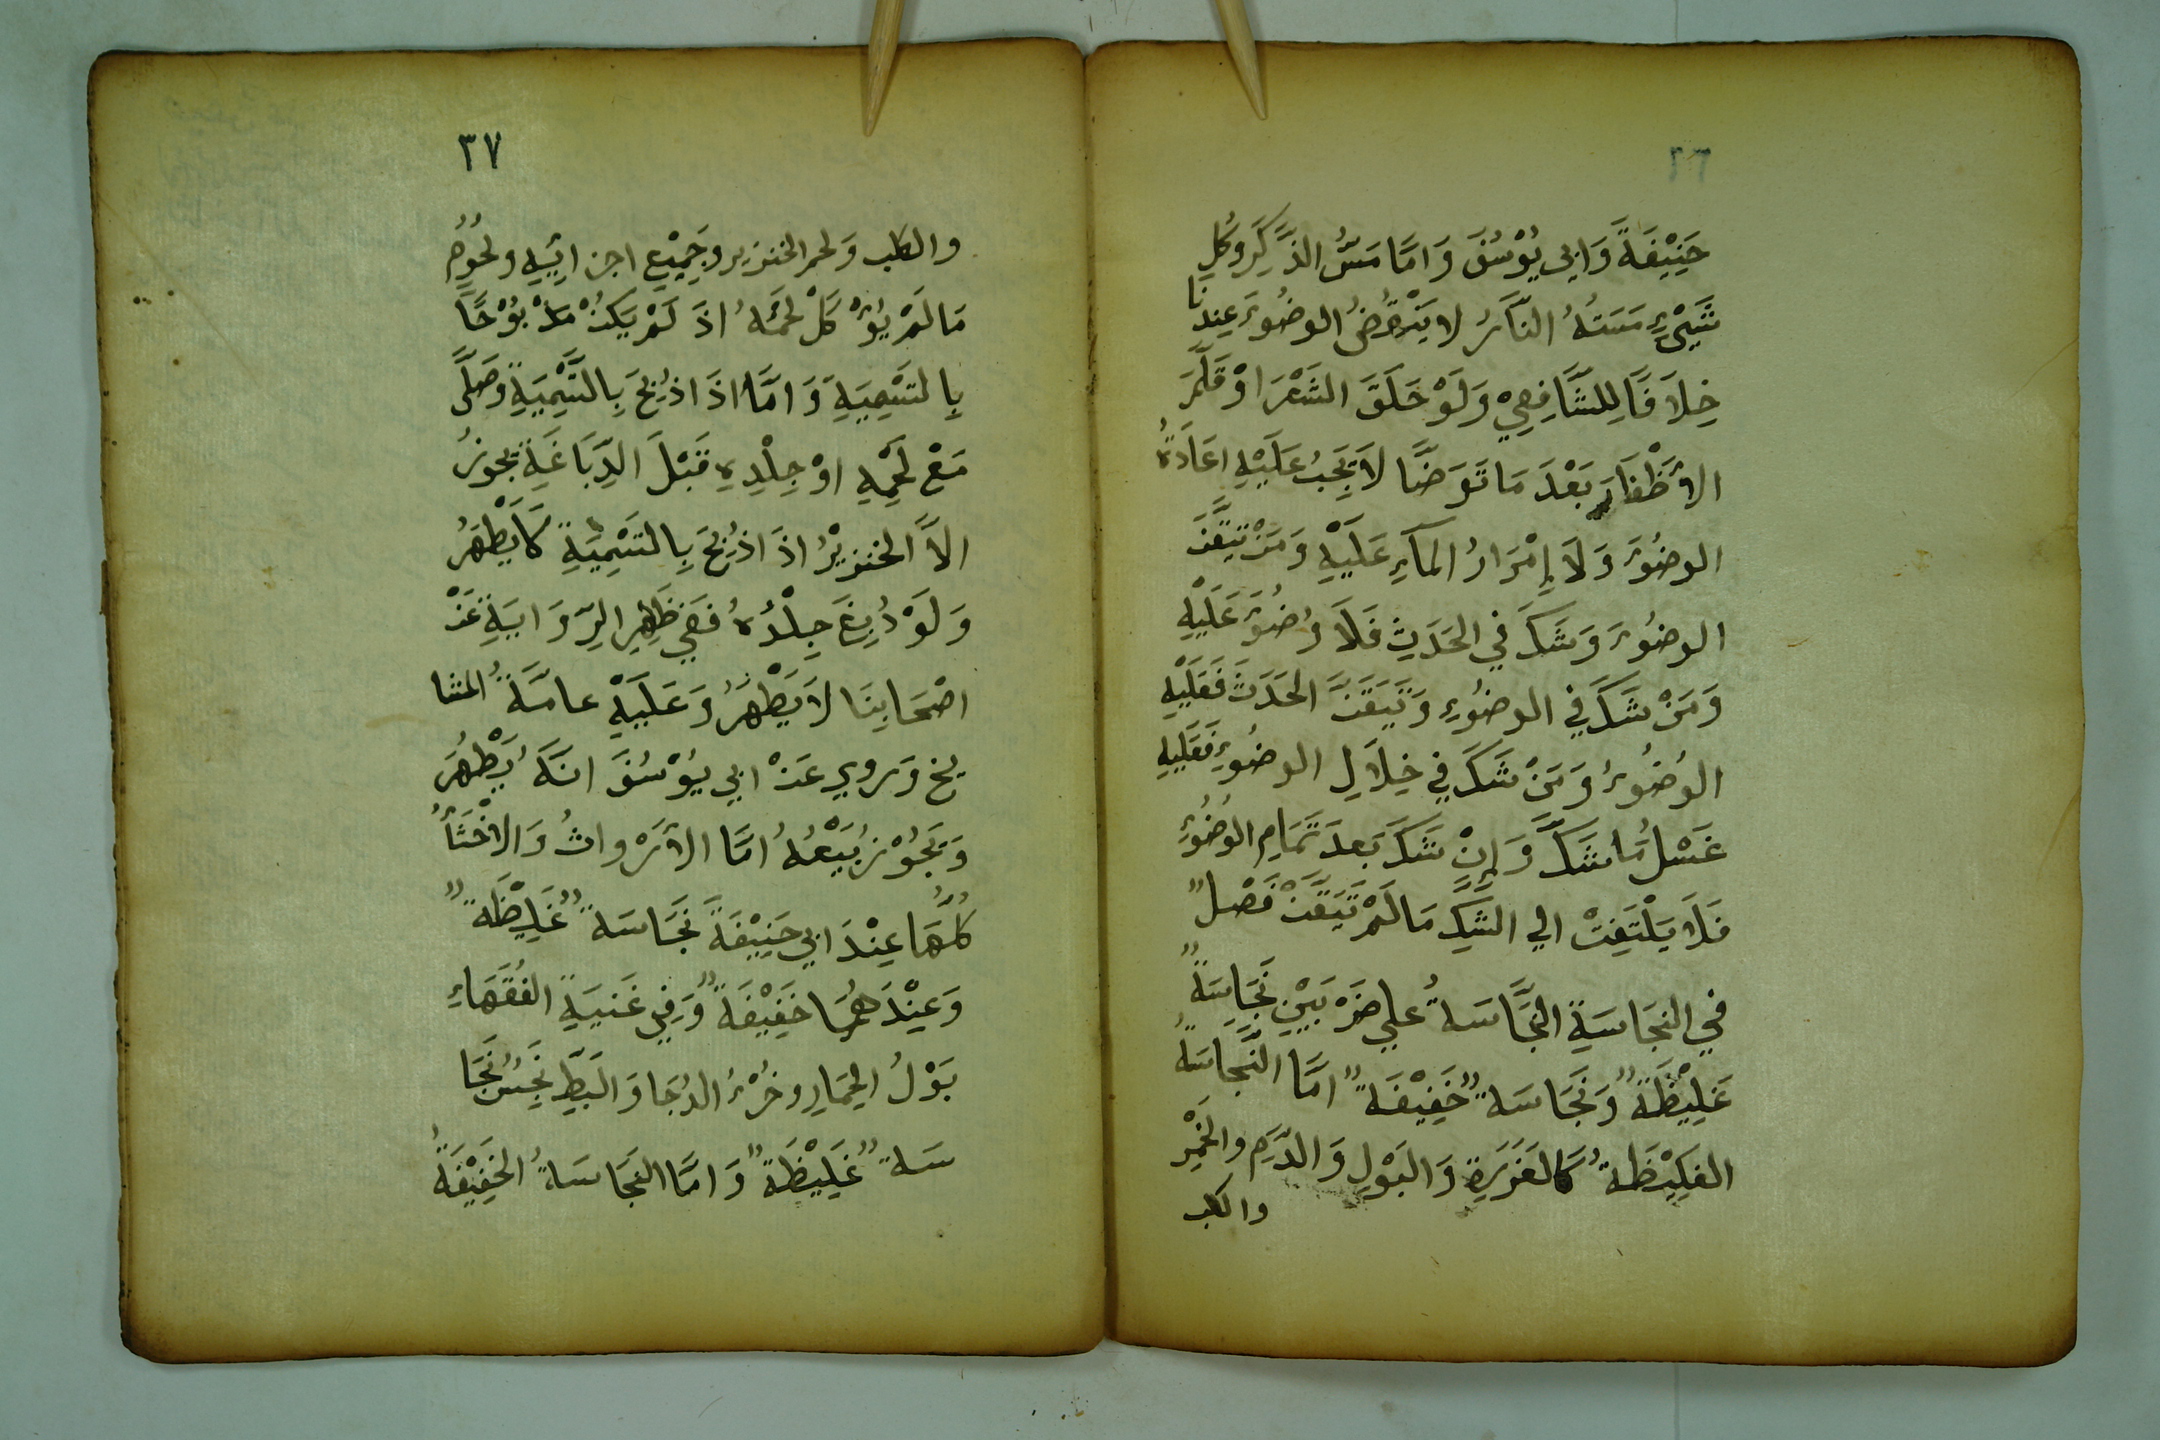 ٣٦
حَنِيْفَةَ وَابِي يُوْسُفَ وَامَّا مَسُّ الذَّكَرِ وَكُلِّ
شَيْءٍ مَسَتْهُ النَّارُ لا يَنْقُضُ الوضُوءَ عِندنا
خِلَافًا لِلشَّافِعِيْ وَلَوْ حَلَقَ الشَّعْرَ اوْ قَلَّمَ
الأَظْفَارَ بَعْدَ مَا تَوَضَّا لَا يَجِبُ عَلَيْهِ اعَادَةُ
الوضُوءِ وَلَا إِمْرَارُ المَآءِ عَلَيْهِ وَمَنْ تيَقَّنَ
الوضُوءَ وَشَكَ فِي الحَدَثِ فَلَا وُضُوءَ عَلَيْهِ
وَمَنْ شَكَ فِي الوضُوءِ وَتَيَقَنَ الحَدَثَ فَعَلَيْهِ
الوُضُوءُ وَمَنْ شَكَ فِي خِلَالِ الوضُوءِ فَعَلَيهِ
غَسْلُ مَا شَكَّ وَاِنْ شَكَ بَعدَ تَمَامِ الوُضُوءِ
فَلَا يَلْتَفِتْ الي الشَّكِ مَا لَمْ تَيَقَّنْ فَصْلٌ
في النجَاسَةِ النَّجَاسَةُ علي ضَرْبَيْنِ نَجَاسَةٌ
غَلِيْظَةٌ وَنَجَاسَةٌ خَفِيْفَةٌ امَّا النَّجَاسَةُ
الغَلِيْظَةُ كَالعَزَرَةِ وَالبَوْلِ وَالدَّمِ والخَمْرِ
والكلب
٣٧
والكلب وَلحم الخنزير وَجَمِيْعِ اجزائِيهِ ولحُوُمِ
مَا لَمْ يُؤْكَلْ لَحْمُهُ اذَ لَمْ يَكُنْ مَذْبُوْحًا
بِالتَسْمِيَةِ وَامَّا اذَا ذُبِحَ بِالتَّسْمِيَةِ وَصَلَّى
مَعْ لَحْمِهِ اوْ جِلْدِهِ قَبْلَ الدِّبَاغَةِ يجوزُ
الَّا الخنزيْرُ اذَا ذُبِحَ بِالتَسْمِيَةِ كَا يَطْهَرُ
وَلَوْ دُبِغَ جِلْدُهُ فَفِي ظَهِرِ الرِّوَايَةِ عَنْ
اصْحَابِنَا لَا يَطْهَرُ وَعَلَيْهِ عامَّةُ المشا
يخ وَروي عَنْ ابي يُوْسُفَ انَهُ يَطْهُرَ
وَيَجُوْزُ بَيْعُهُ امَّا الأَرْواثُ وَالاَخْثَأُ
كُلُّهَا عِنْدَ ابِي حَنِيْفَةَ نَجَاسَةٌ غَلِيْظَةٌ
وَعِنْدَهُمَا خَفِيْفَةٌ وَفِي غَنيَةِ الفُقَهَاءِ
بَوْلُ الحِمَارِ وخُرْءُ الدُجَا وَالبَطِّ نَجِسٌ نَجَا
سَةٌ غَلِيْظَةٌ وَامَّا النجَاسَةُ الخَفِيْفَةُ